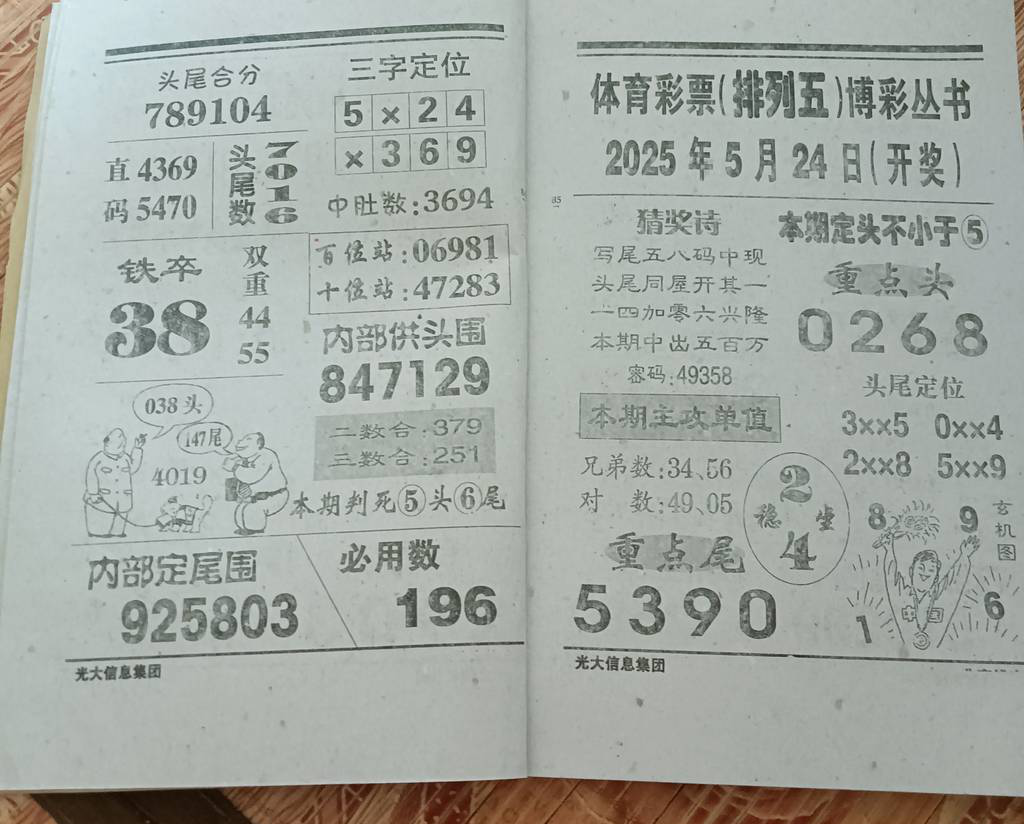 头尾合分
789104
直 4369
码 5470
头尾数
7016
铁卒
38
双重
44
55
038 头
147尾
4019
三字定位
5 × 2 4
× 3 6 9
中肚数:3694
百位站:06981
十位站:47283
内部供头围
847129
二数合:379
三数合:251
本期判死⑤头⑥尾
内部定尾围
925803
必用数
196
光大信息集团
体育彩票(排列五)博彩丛书
2025年5月24日(开奖)
猜奖诗
写尾五八码中现
头尾同屋开其一
一四加零六兴隆
本期中出五百万
密码:49358
本期主攻单值
兄弟数:34、56
对 数:49、05
2
稳坐
4
重点尾
5390
本期定头不小于⑤
重点头
0268
头尾定位
3××5 0××4
2××8 5××9
玄机图
8 9
中国
1 6
光大信息集团